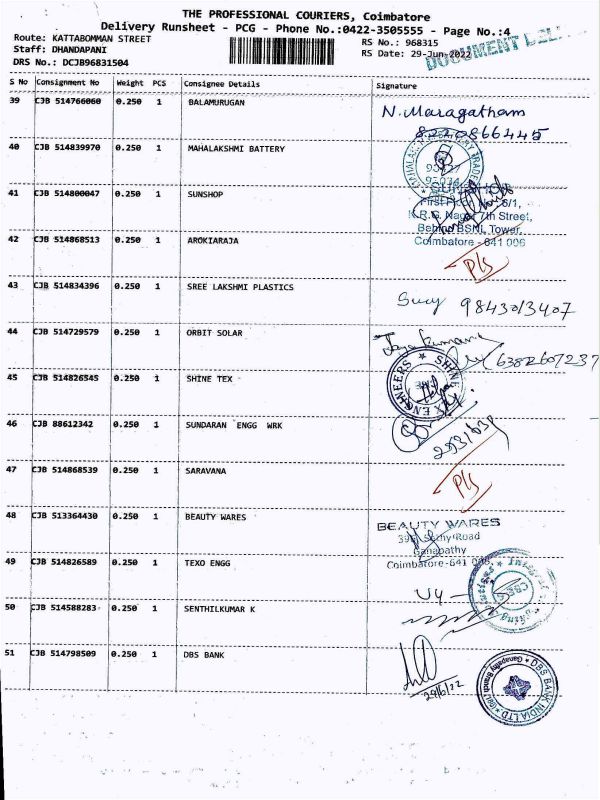 THE PROFESSIONAL COURIERS, Coimbatore
Delivery Runsheet - PCG - Phone No.:0422-3505555 - Page No.:4
Route: KATTABOMMAN STREET
RS No.: 968315
Staff: DHANDAPANI
RS Date: 29-Jun-2022
DOCUMENT
DRS No.: DCJB96831504
S No Consignment No Weight PCS Consignee Details Signature
39 CJB 514766060 0.250 1 BALAMURUGAN N. Maragatham
8220866445
40 CJB 514839970 0.250 1 MAHALAKSHMI BATTERY
41 CJB 514800047 0.250 1 SUNSHOP
K.R.G. Nagar 7th Street,
Behind BSNL Tower,
42 CJB 514868513 0.250 1 AROKIARAJA Coimbatore - 641 006
43 CJB 514834396 0.250 1 SREE LAKSHMI PLASTICS
9843013407
44 CJB 514729579 0.250 1 ORBIT SOLAR
6382607237
45 CJB 514826545 0.250 1 SHINE TEX SHINE TEX ENGINEERS
46 CJB 88612342 0.250 1 SUNDARAN ENGG WRK
47 CJB 514868539 0.250 1 SARAVANA
48 CJB 513364430 0.250 1 BEAUTY WARES BEAUTY WARES
Sathy Road
Ganapathy
49 CJB 514826589 0.250 1 TEXO ENGG Coimbatore-641 006
50 CJB 514588283 0.250 1 SENTHILKUMAR K
51 CJB 514798509 0.250 1 DBS BANK
DBS BANK INDIA LTD
Ganapathy Branch
29/6/22